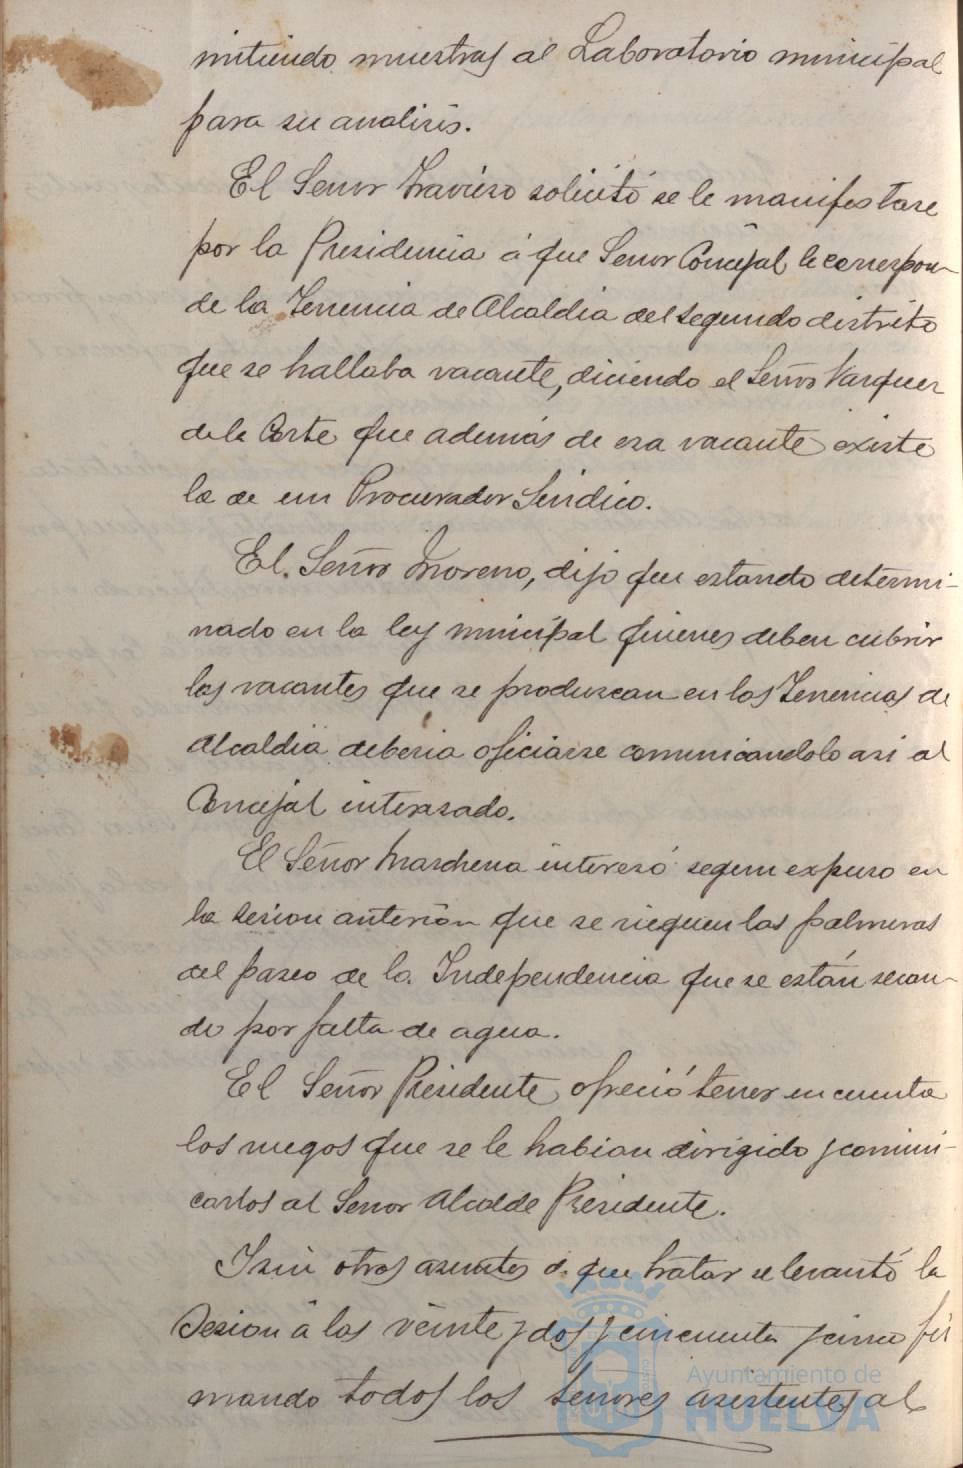 mitiendo muestras al Laboratorio municipal
para su analisis.
El Señor Travieso solicitó se le manifestase
por la Presidencia á que Señor Concejal le correspon-
de la Tenencia de Alcaldia del segundo distrito
que se hallaba vacante, diciendo el Señor Vazquez
de la Corte que además de esa vacante existe
la de un Procurador Sindico.
El Señor Moreno, dijo que estando determi-
nado en la ley municipal quienes deben cubrir
las vacantes que se produzcan en las Tenencias de
Alcaldia deberia oficiarse comunicandolo asi al
Concejal interesado.
El Señor Marchena interesó segun expuso en
la sesion anterior que se rieguen las palmeras
del paseo de la Independencia que se están secan-
do por falta de agua.
El Señor Presidente ofreció tener en cuenta
los ruegos que se le habian dirigido y comuni-
carlos al Señor Alcalde Presidente.
Y sin otros asuntos de que tratar se levantó la
Sesion á las veinte y dos y cincuenta y cinco fir
mando todos los señores asistentes al
Ayuntamiento de
HUELVA